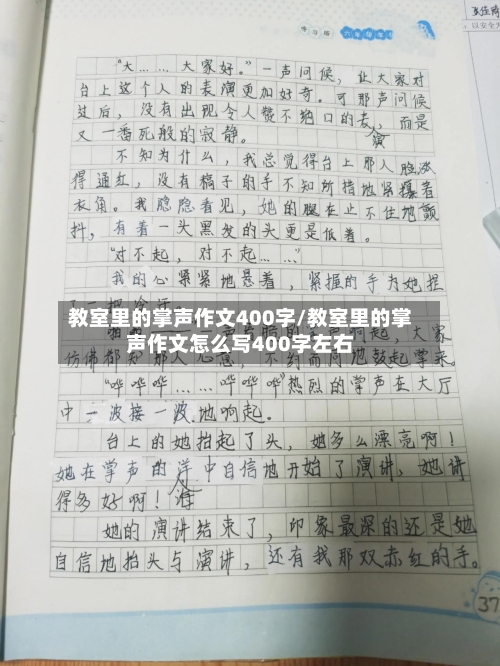 练习簿 六年级
"大……大家好。"一声问候，让大家对
台上这个人的表演更加好奇。可那声问候
过后，没有出现令人赞不绝口的表，而是
演
又一番死般的寂静。
不知为什么，我总觉得台上那人脸涨
得通红，没有稿子的手不知所措地紧攥着
衣角。我隐隐看见，她的腿在止不住地颤
抖，有着一头黑发的头更是低着。
"对不起，对不起……"
我的心紧紧地悬着，紧握的手为她捏
教室里的掌声作文400字/教室里的掌
声作文怎么写400字左右
大家
仿佛都知那人心意，不约而同地鼓起掌来。
"哗哗哗……哗哗哗"热烈的掌声在大厅
中一波接一波地响起。
台上的她抬起了头，她多么漂亮啊！
她在掌声的洋中自信地开始了演讲，她讲
得多好啊！海
她的演讲结束了，印象最深的还是她
自信地抬头与演讲，还有我那双赤红的手。
37